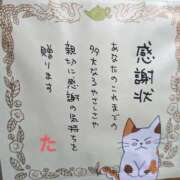 感謝状
あなたのこれまでの
多大なるやさしさや
親切に感謝の気持ちを
贈ります。
た